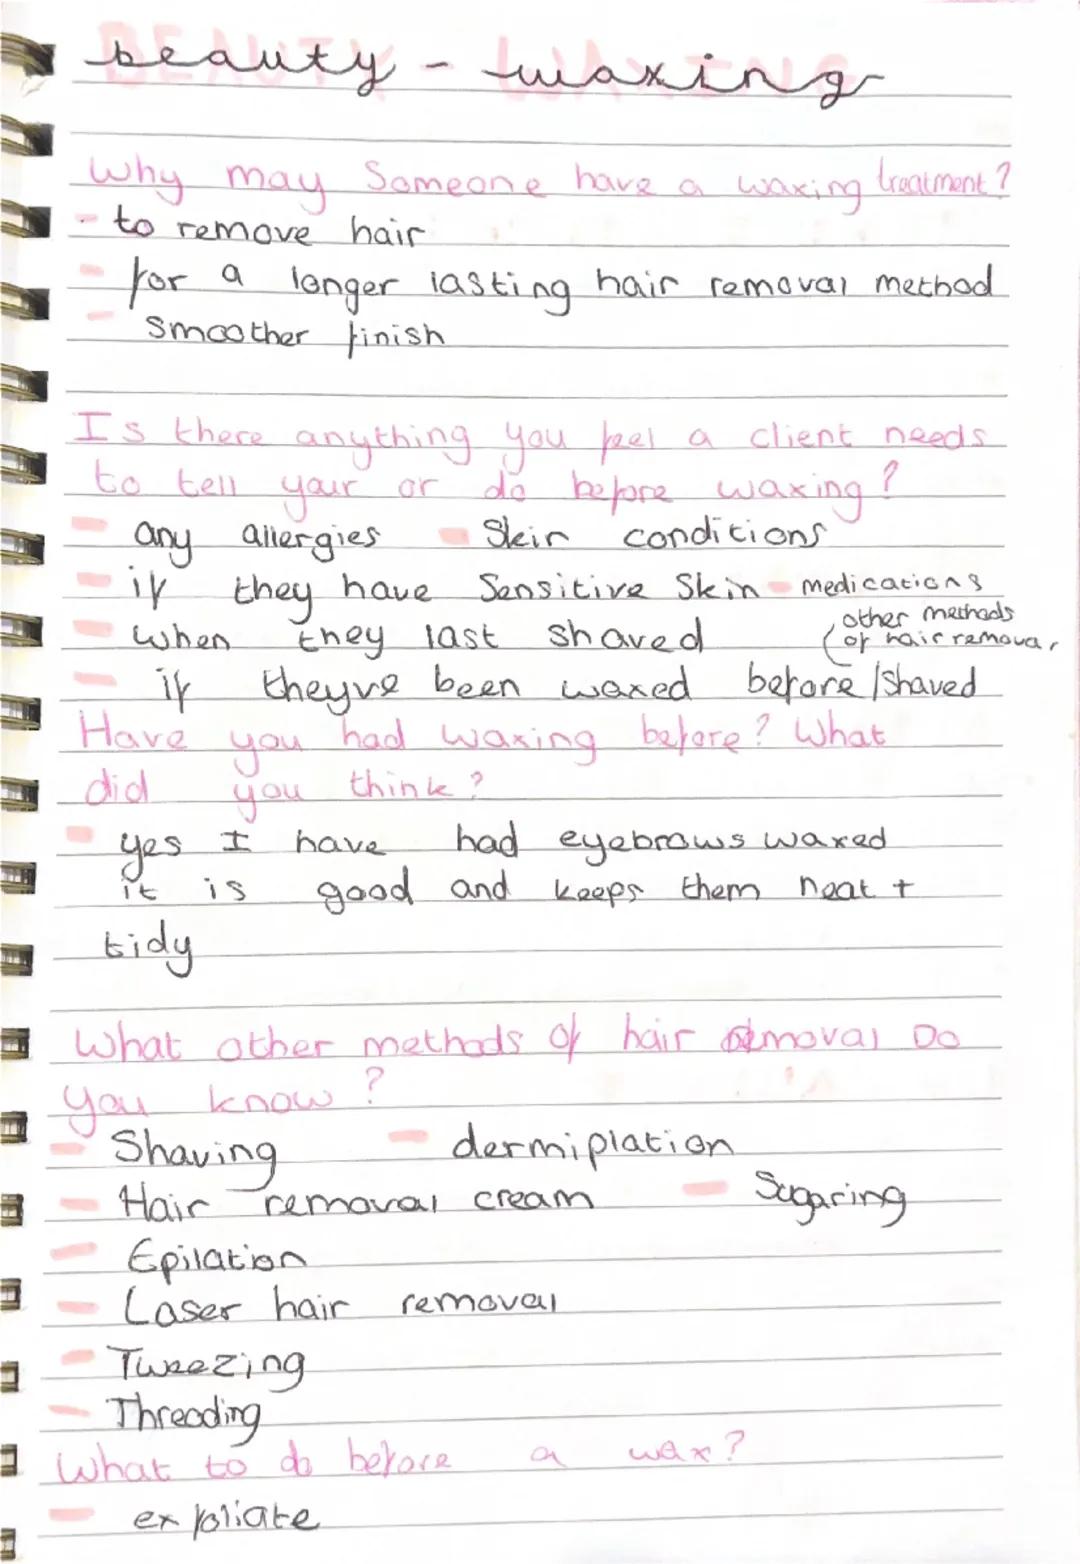 BEAUTY WAXING
beauty - waxing
Why may Someone have a waxing treatment?
- to remove hair
- for a longer lasting hair removal method
- smoother finish
Is there anything you feel a client needs
to tell your or do before waxing?
- any allergies - Skin conditions
- if they have Sensitive Skin - medications
- when they last shaved (other methods
of hair removal
- if theyve been waxed before /shaved
Have you had waxing before? What
did you think?
- yes I have had eyebrows waxed
it is good and keeps them neat +
tidy
What other methods of hair removal Do
you know?
- Shaving - dermiplation
- Hair removal cream - Sugaring
- Epilation
- Laser hair removal
- Tweezing
- Threading
What to do before a wax?
- exfoliate